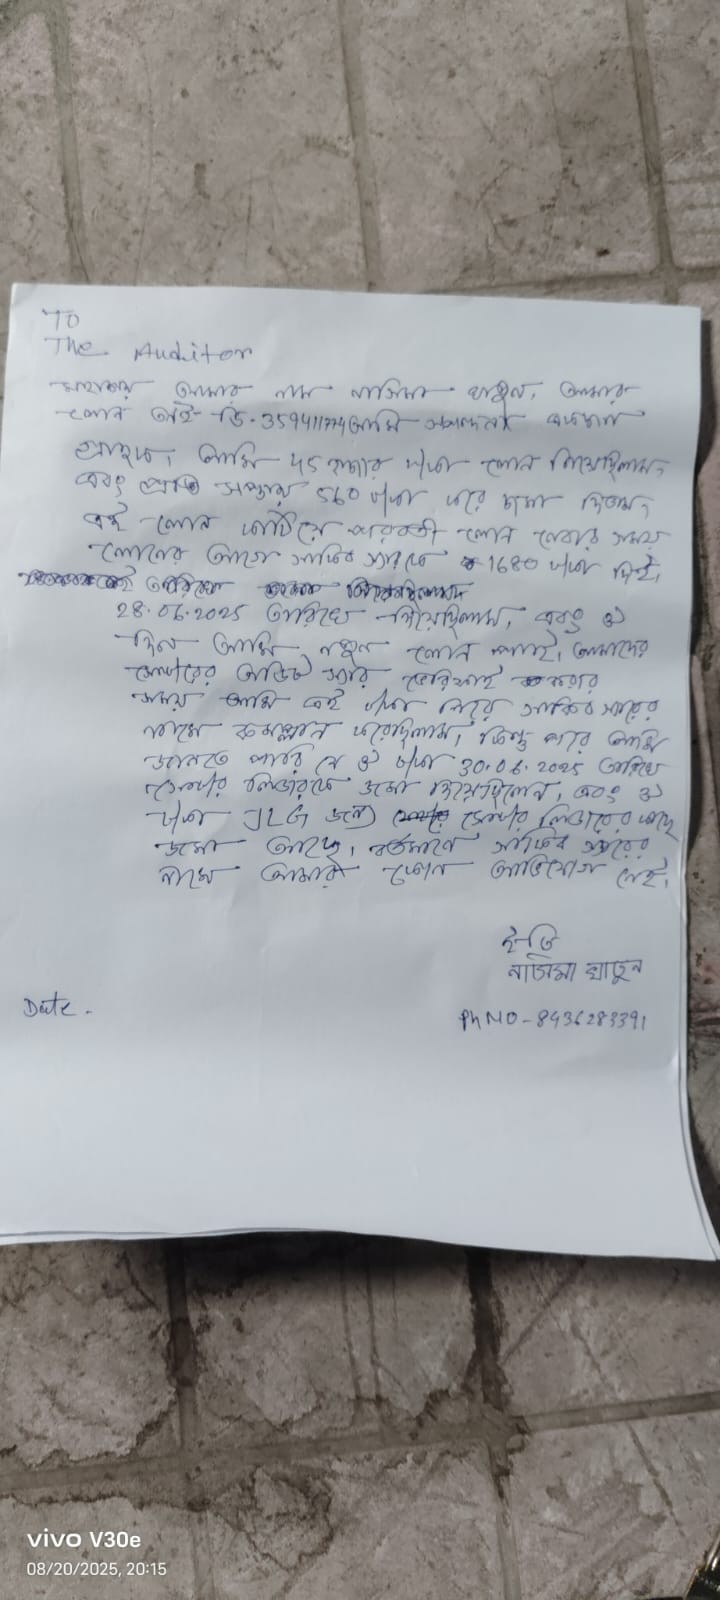 To
The Auditor
মহাশয় আমার নাম নাসিমা খাতুন, আমার
লোন আই ডি. 359411774 আমি একজন
গ্রাহক, আমি 45 হাজার টাকা লোন নিয়েছিলাম,
এবং প্রতি সপ্তাহে 560 টাকা করে জমা দিতাম,
এই লোন কাটিয়ে পরবর্তী লোন নেবার সময়
লোনের আগে সাকিব স্যারকে 1680 টাকা দিই,
28.06.2025 তারিখে দিয়েছিলাম, এবং ঐ
দিন আমি নতুন লোন পাই, আমাদের
সেন্টারের অডিট স্যার ভেরিফাই করার
সময় আমি এই টাকা নিয়ে সাকিব স্যারের
নামে কমপ্লান করেছিলাম, কিন্তু পরে আমি
জানতে পারি যে ঐ টাকা 30.06.2025 তারিখে
সেন্টার লিডারকে জমা দিয়েছিলেন, এবং ঐ
টাকা JLG জন্য সেন্টার লিডারের কাছে
জমা আছে, বর্তমানে সাকিব স্যারের
নামে আমার কোন অভিযোগ নেই,
ইতি
নাসিমা খাতুন
Date.
Ph NO - 8436283391
vivo V30e
08/20/2025, 20:15